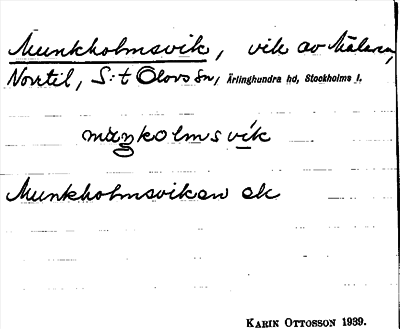 Munkholmsvik, vik av Mälaren,
Norrtil, S:t Olovs sn, Ärlinghundra hd, Stockholms l.
måŋkolmsvik
Munkholmsviken ek
Karin Ottosson 1939.